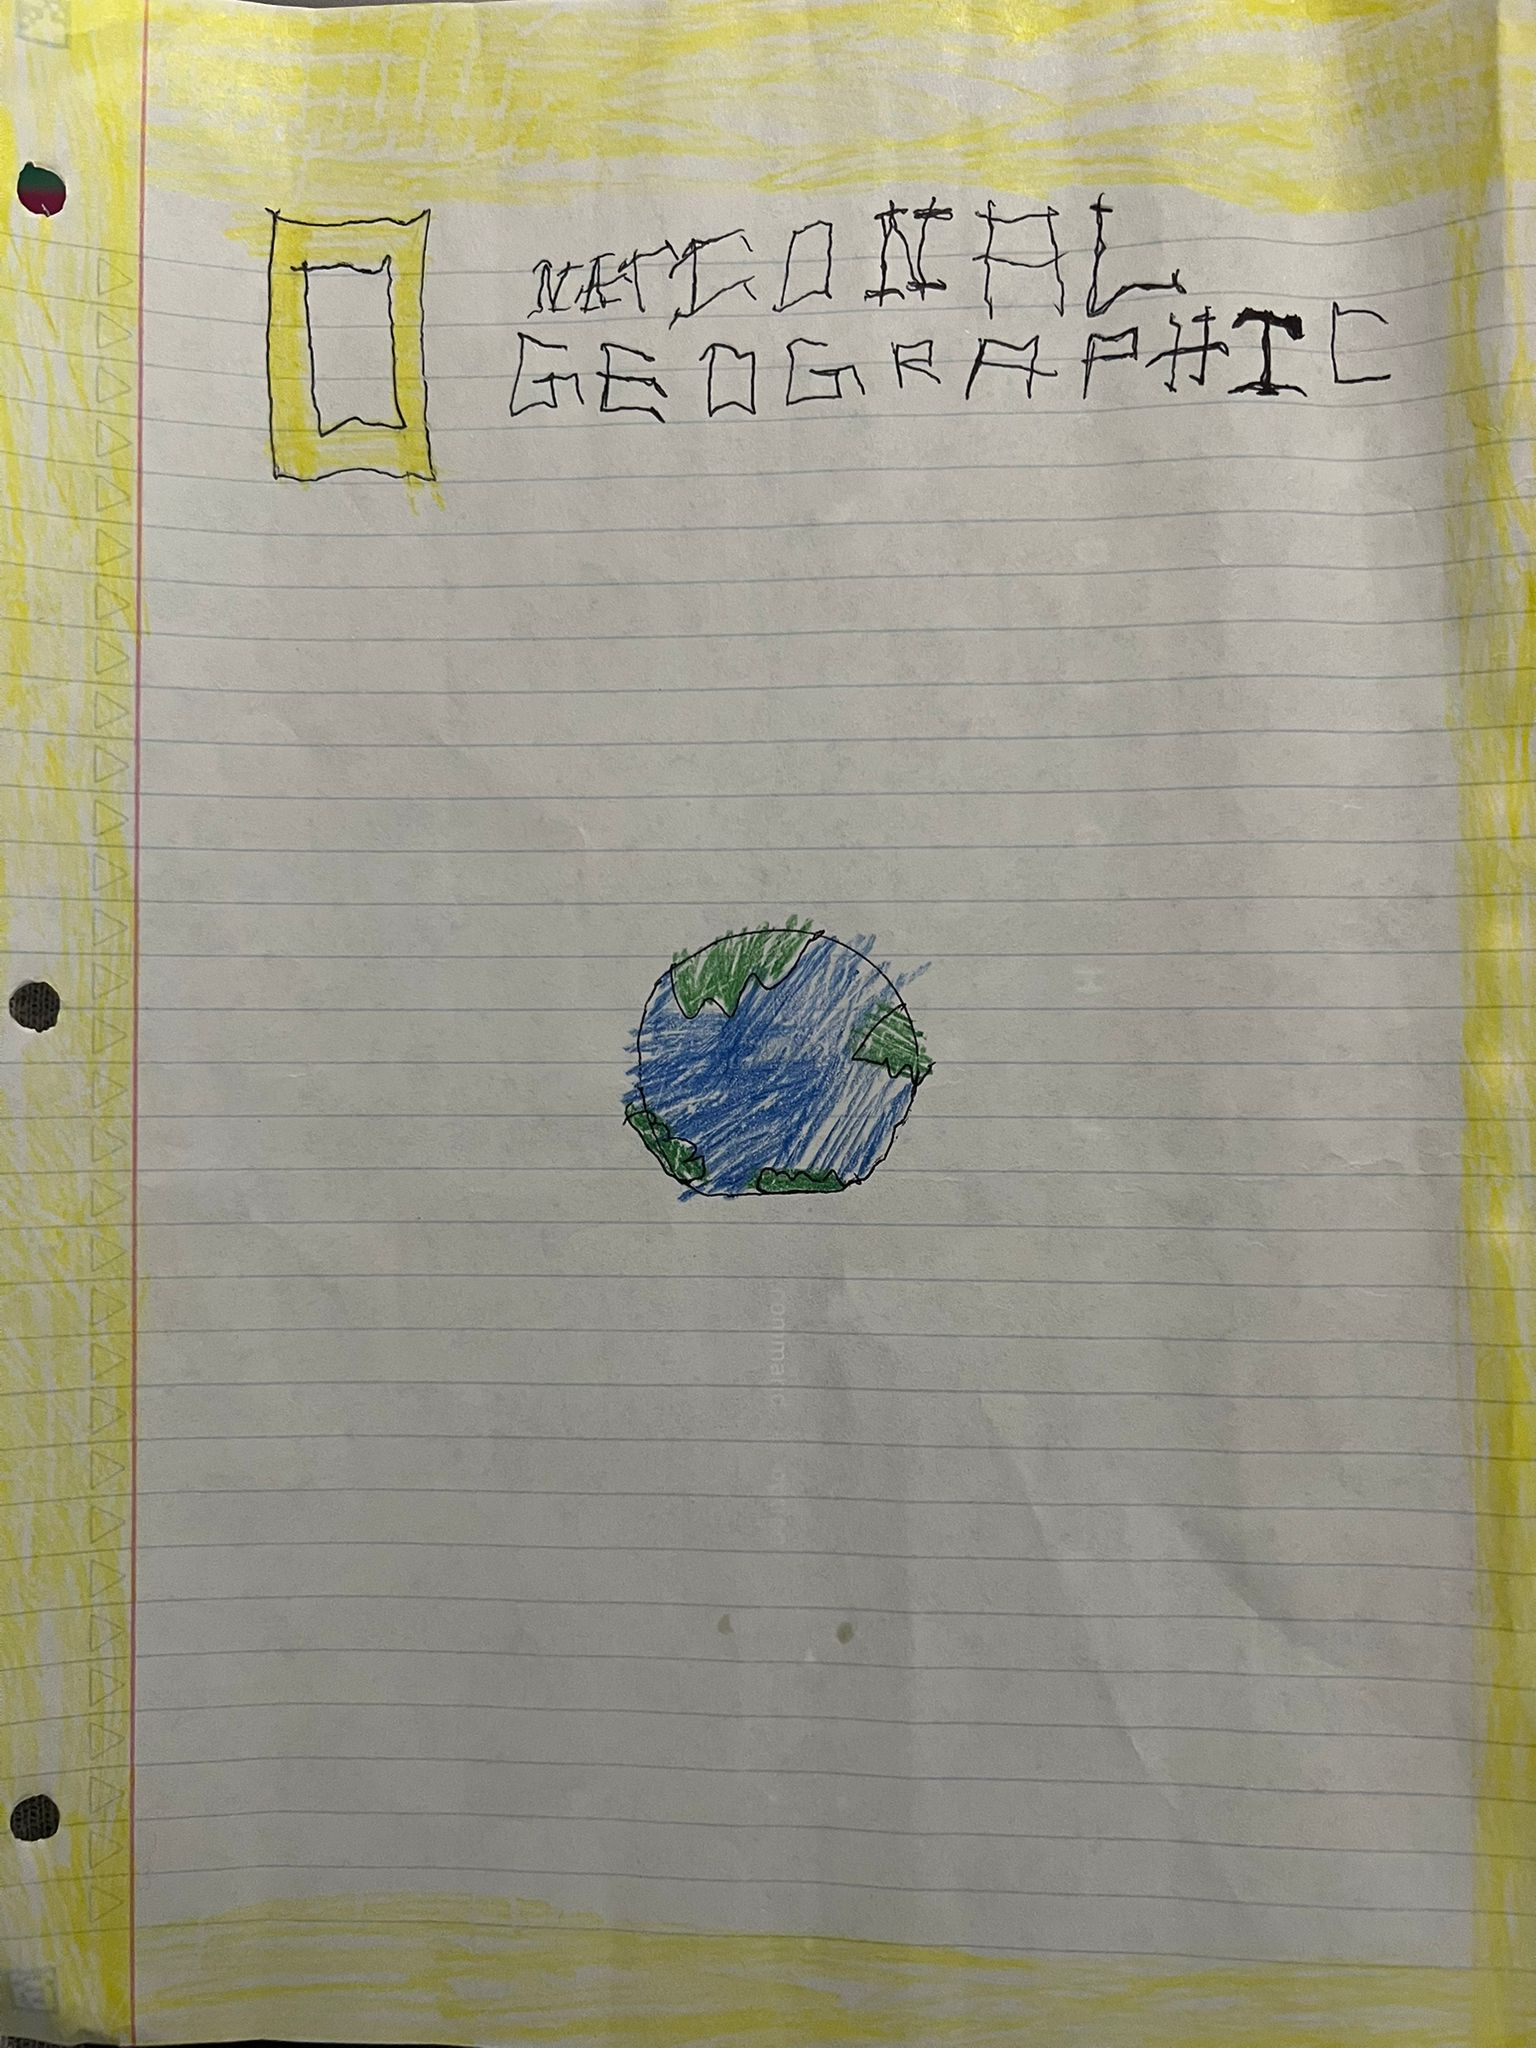 NATIONAL
GEOGRAPHIC